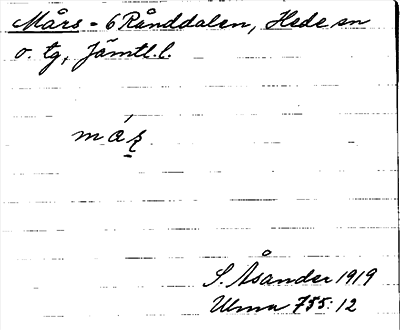 Mårs - 6 Rånddalen, Hede sn
o. tg, Jämtl. l.
S. Åsander 1919
Ulma 755:12